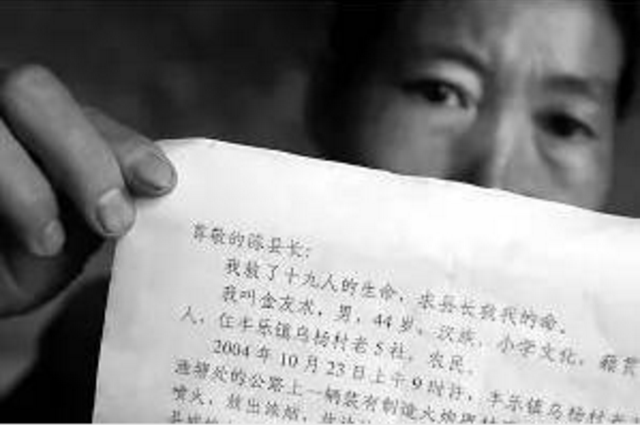 尊敬的陈县长：
我救了十九人的生命，求县长救我的命。
我叫金有术，男，44岁，汉族，小学文化，籍贯
人，住丰乐镇乌杨村老5社，农民。
2004年10月23日上午9时许，丰乐镇乌杨村老
处的公路上一辆装有制造火炮
喷火，放出浓烟，